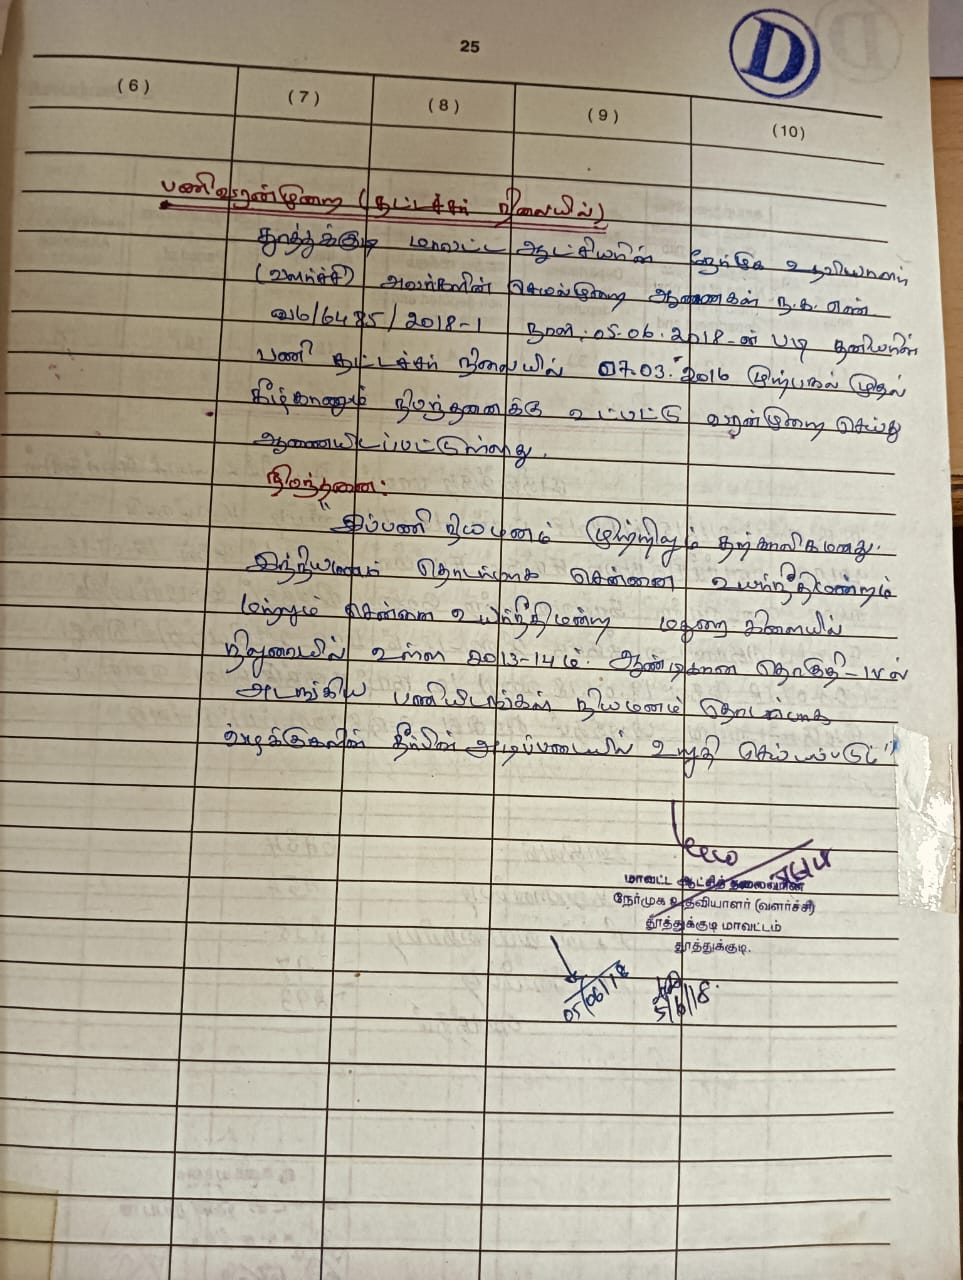 25
D
(6) (7) (8) (9) (10)
பணிவரன்முறை (தட்டச்சர் நிலையில்)
தூத்துக்குடி மாவட்ட ஆட்சியரின் நேர்முக உதவியாளர்
(வளர்ச்சி) அவர்களின் செயல்முறை ஆணைகள் ந.க.எண்.
வ6/6485/2018-1 நாள்: 05.06.2018-ன் படி தனியரின்
பணி தட்டச்சர் நிலையில் 07.03.2016 முற்பகல் முதல்
கீழ்காணும் நிபந்தனைக்கு உட்பட்டு வரன்முறை செய்து
ஆணையிடப்பட்டுள்ளது.
நிபந்தனை:
"இப்பணி நியமனம் முற்றிலும் தற்காலிகமானது.
இந்நியமனம் தொடர்பாக சென்னை உயர்நீதிமன்றம்
மற்றும் சென்னை உயர்நீதிமன்ற மதுரை கிளையில்
நிலுவையில் உள்ள 2013-14ம் ஆண்டிகான தொகுதி-IVல்
அடங்கிய பணியிடங்கள் நியமனம் தொடர்பாக
வழக்குகளின் தீர்ப்பின் அடிப்படையில் உறுதி செய்யப்படும்"
மாவட்ட ஆட்சித்தலைவரின்
நேர்முக உதவியாளர் (வளர்ச்சி)
தூத்துக்குடி மாவட்டம்
தூத்துக்குடி.
05/06/18
5/6/18.